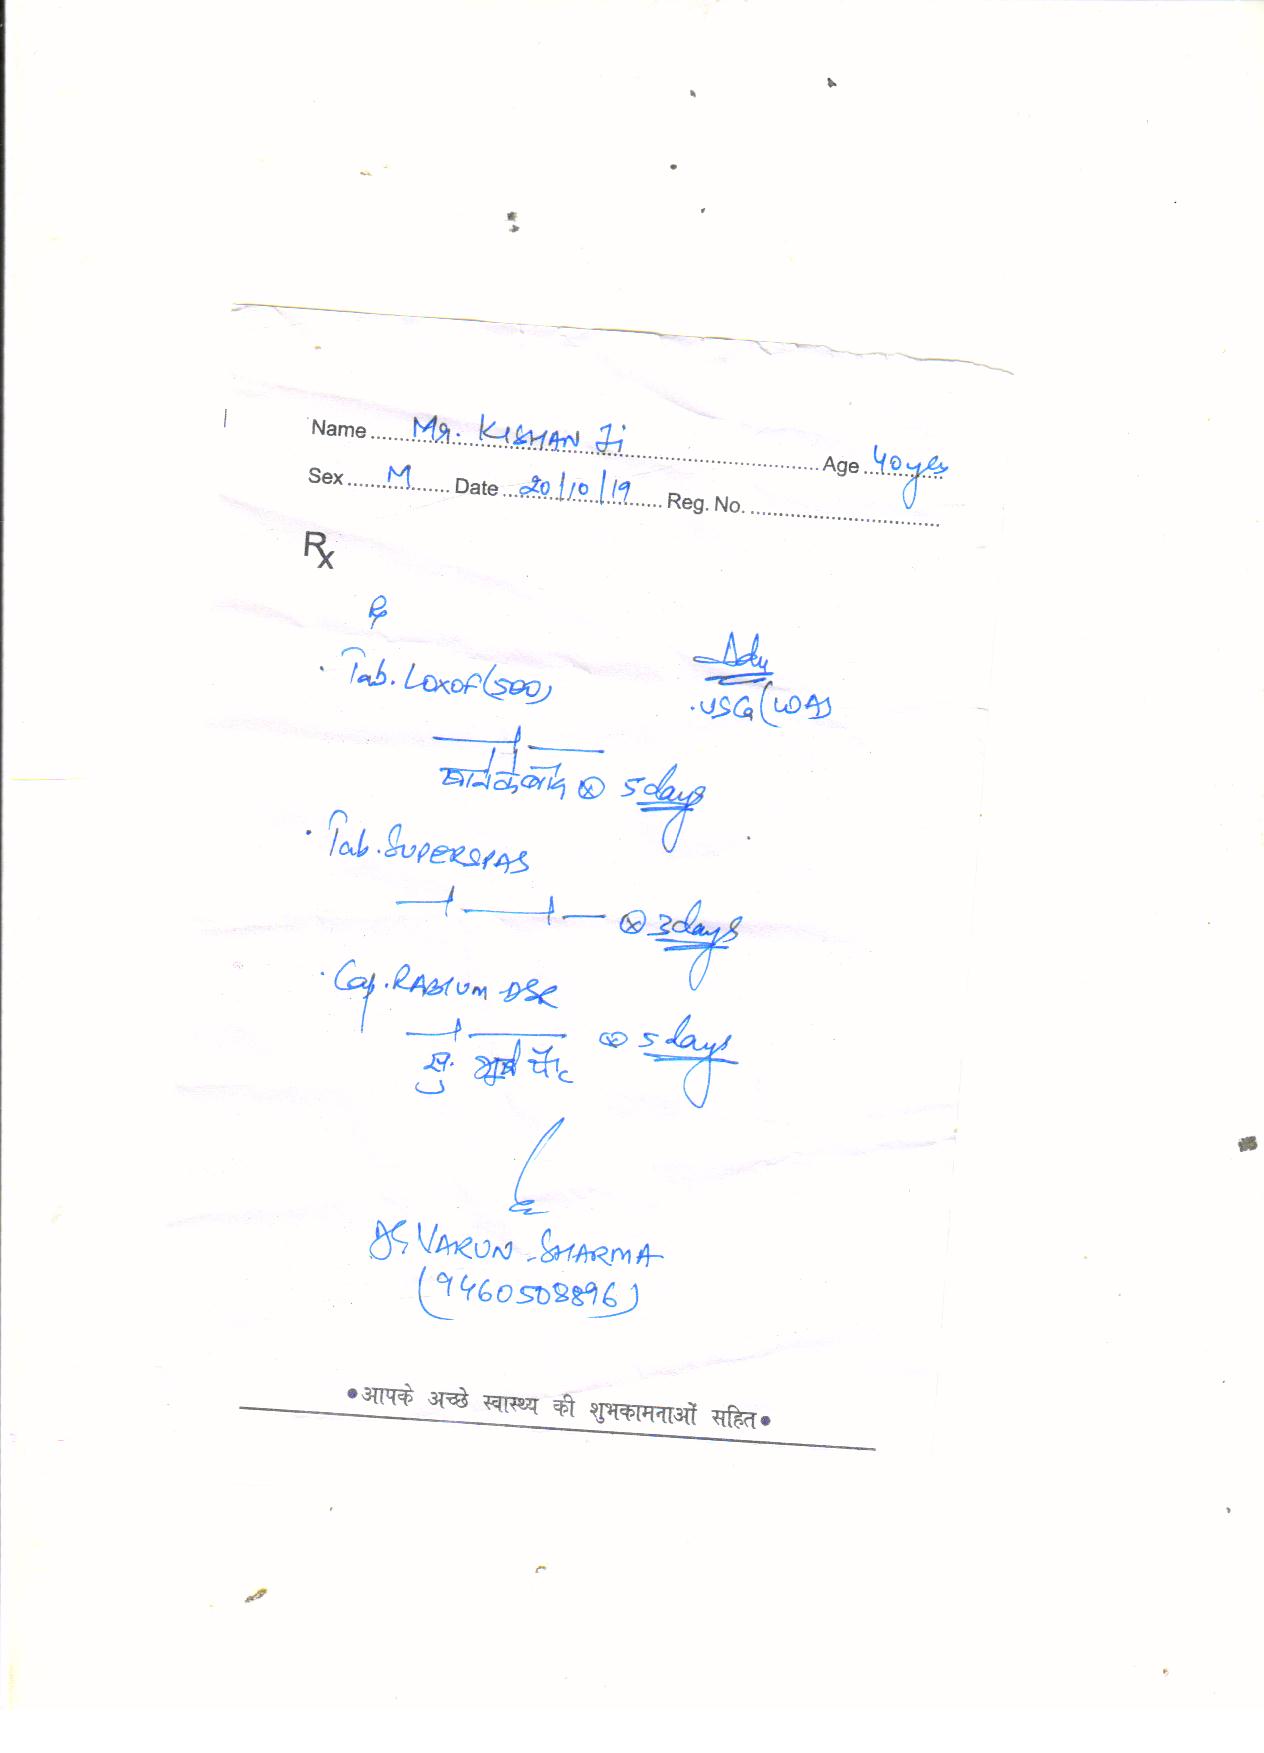 Name Mr. KISHAN Ji Age 40 yrs
Sex M Date 20/10/19 Reg. No.
Rx
Rx
Adv
· Tab. LOXOF (500)
· USG (WA)
खाने के बाद ⊗ 5 days
· Tab. SUPERSPAS
⊗ 3 days
· Cap. RABIUM DSR
⊗ 5 days
सु. भूखे पेट
Dr VARUN SHARMA
(9460508896)
•आपके अच्छे स्वास्थ्य की शुभकामनाओं सहित•